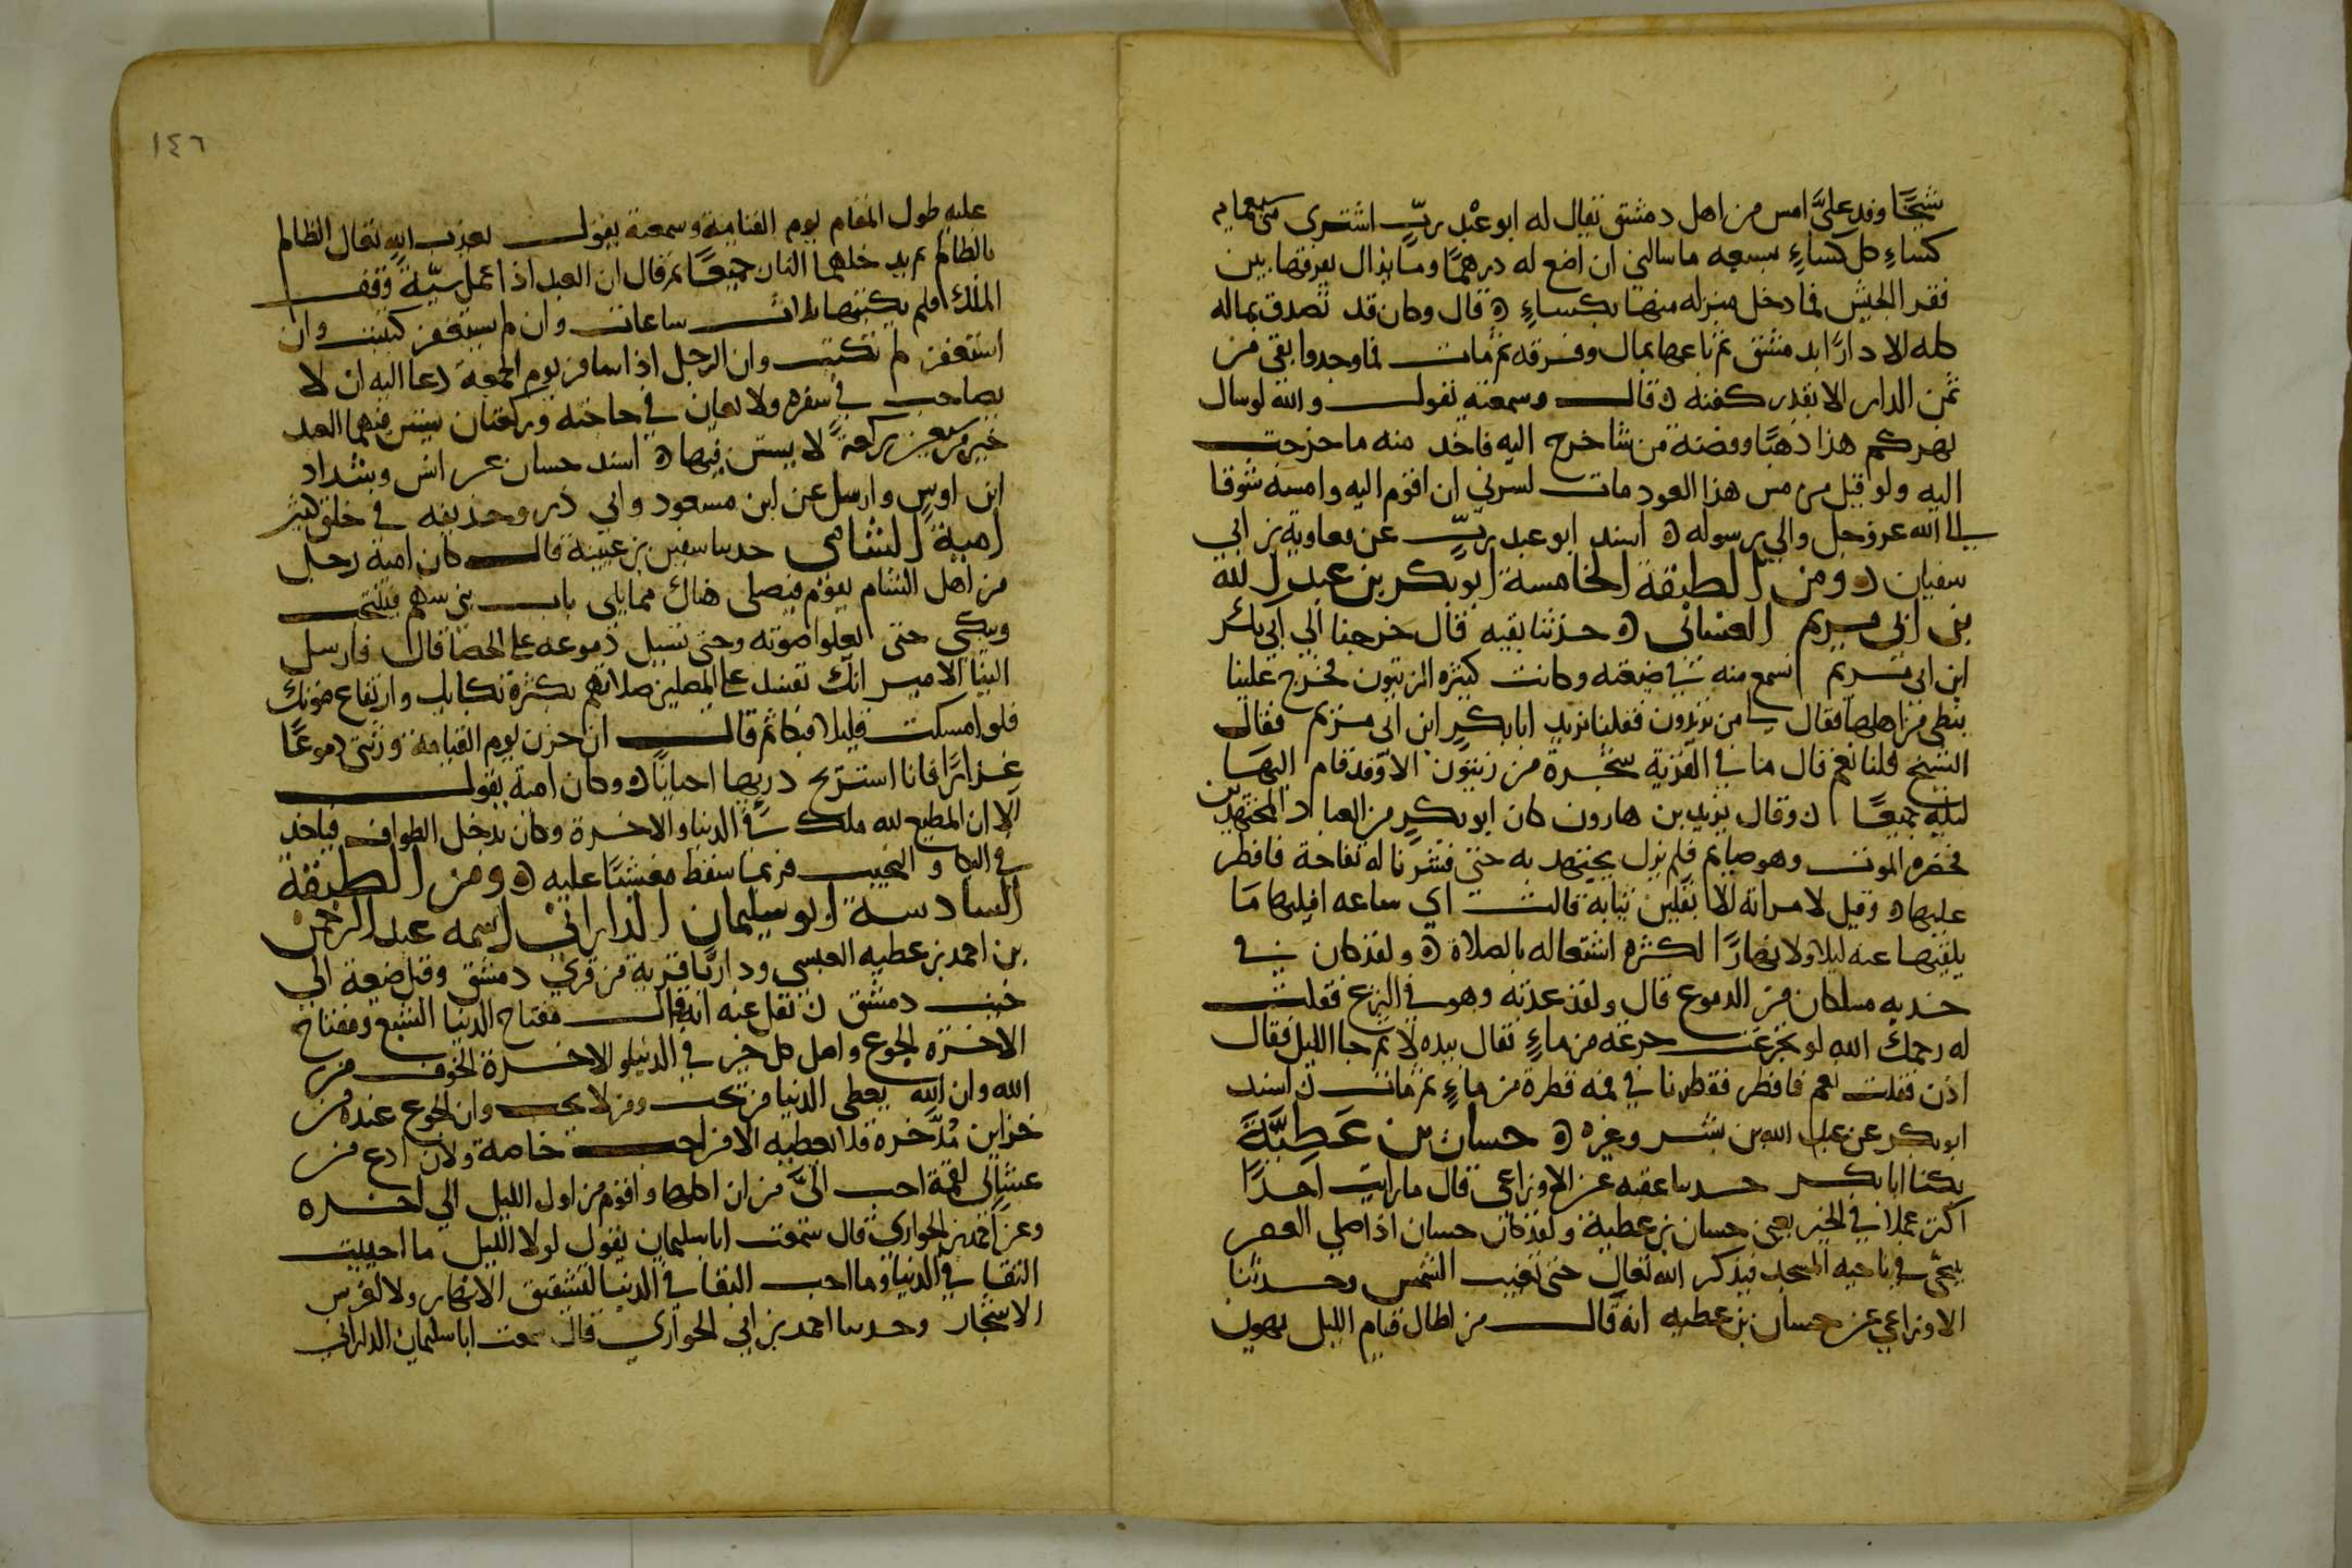 شيخا وفد عليَّ امس من اهل دمشق يقال له ابو عبد ربّ اشترى مني سبعمايه
كساءٍ كل كساءٍ بسبعه ما سالني ان اضع له درهمًا وما يزال يفرقها بين
فقر الجيش فما دخل منزله منها بكساءٍ ه قال وكان قد تصدق بماله
كله الا دارًا بدمشق ثم باعها بمال وفرقه ثم مات فما وجدوا بقي من
ثمن الدار الا بقدر كفنه ه قال وسمعته يقول والله لو سال
نهركم هذا ذهبًا وفضة من شا خرج اليه فاخذ منه ما خرجت
اليه ولو قيل من مس هذا العود مات لسرني ان اقوم اليه وامسه شوقا
الى الله عز وجل والي رسوله ه اسند ابو عبد ربّ عن معاوية بن ابي
سفيان ه ومن الطبقة الخامسة ابو بكر بن عبد الله
بن ابي مريم الغساني ه حدثنا بقيه قال خرجنا الي ابي بكر
ابن ابي مريم نسمع منه في ضيعته وكانت كثيرة الزيتون فخرج علينا
نبطي من اهلها فقال لي من تريدون فقلنا نريد ابا بكر ابن ابي مريم فقال
الشيخ قلنا نعم قال ما في القرية شجرة من زيتون الا وقد قام اليها
ليلة جميعًا ه وقال يزيد بن هارون كان ابو بكر من العباد المجتهدين
فحضره الموت وهو صايم فلم نزل نجتهد به حتى قشرنا له تفاحة فافطر
عليها ه وقيل لامراته الا تفلين ثيابه قالت اي ساعه افليها ما
يلقيها عنه ليلا ولا نهارًا لكثرة اشتغاله بالصلاة ه ولقد كان في
خديه مسلكان من الدموع قال ولقد عدته وهو في النزع فقلت
له رحمك الله لو تجرعت جرعة من ماءٍ فقال بيده لا ثم جا الليل فقال
اذن فقلت نعم فافطر فقطرنا في فمه قطرة من ماءٍ ثم مات ه اسند
ابو بكر عن عبد الله بن بشر وغيره ه حسان بن عَطِيَّةَ
يكنا ابا بكر حدثنا عقبه عن الاوزاعي قال ما رايت احدًا
اكثر عملا في الخير يعني حسان بن عطية ولقد كان حسان اذا صلي العصر
يتنحّى في ناحيه المسجد فيذكر الله تعالى حتى تغيب الشمس وحدثنا
الاوزاعي عن حسان بن عطيه انه قال من اطال قيام الليل يهون
١٤٦
عليه طول المقام يوم القيامة وسمعته يقول يعذب الله تعال الظالم
بالظالم ثم يدخلهما النار جميعًا ثم قال ان العبد اذا عمل سيّة وقف
الملك فلم يكتبها ثلاث ساعات وان لم يستغفر كتبت وان
استغفر لم تكتب وان الرجل اذا سافر يوم الجمعة دعا اليه ان لا
يصاحب في سفره ولا يعان في حاجته وركعتان يستن فيهما العبد
خير من سبعين ركعة لا يستن فيها ه اسند حسان عن انس وشداد
ابن اوسٍ وارسل عن ابن مسعود وابي ذر وحذيفه في خلق كثير
امية الشامي حدثنا سفين بن عيينة قال كان امية رجل
من اهل الشام يقوم فيصلى هناك مما يلى باب بني سهم فينتحب
ويبكي حتى يعلوا صوته وحتى تسيل دموعه على الحصا قال فارسل
الينا الامير انك تفسد على المصلين صلاتهم بكثرة بكايك وارتفاع صوتك
فلو امسكت قليلا فبكا ثم قال ان حزن يوم القيامة ورثتي دموعًا
غزارًا فانا استريح ذريها احيانًا ه وكان امية يقول
الا ان المطيع لله ملك في الدنيا والاخرة وكان يدخل الطواف فياخذ
في البكا والنحيب فربما سقط مغشيًا عليه ه ومن الطبقة
السادسة ابو سليمان الداراني اسمه عبد الرحمن
بن احمد بن عطيه العبسي وداريّا قرية من قري دمشق وقيل ضيعة الي
جنب دمشق ه نقل عنه انه قال مفتاح الدنيا الشبع ومفتاح
الاخرة الجوع واصل كل خير في الدنيا والاخرة الخوف من
الله وان الله يعطي الدنيا من يحب ومن لا يحب وان الجوع عنده من
خزاين مُدَّخرة فلا يعطيه الا من احب خاصة ولان ادع من
عشاى لقمة احب اليَّ من ان اكلها واقوم من اول الليل الي اخره
وعن احمد بن الحواري قال سمعت ابا سليمان يقول لولا الليل ما احببت
البقا في الدنيا وما احب البقا في الدنيا لتشقيق الانهار ولا لغرس
الاشجار وحدثنا احمد بن ابي الحواري قال سمعت ابا سليمان الداراني